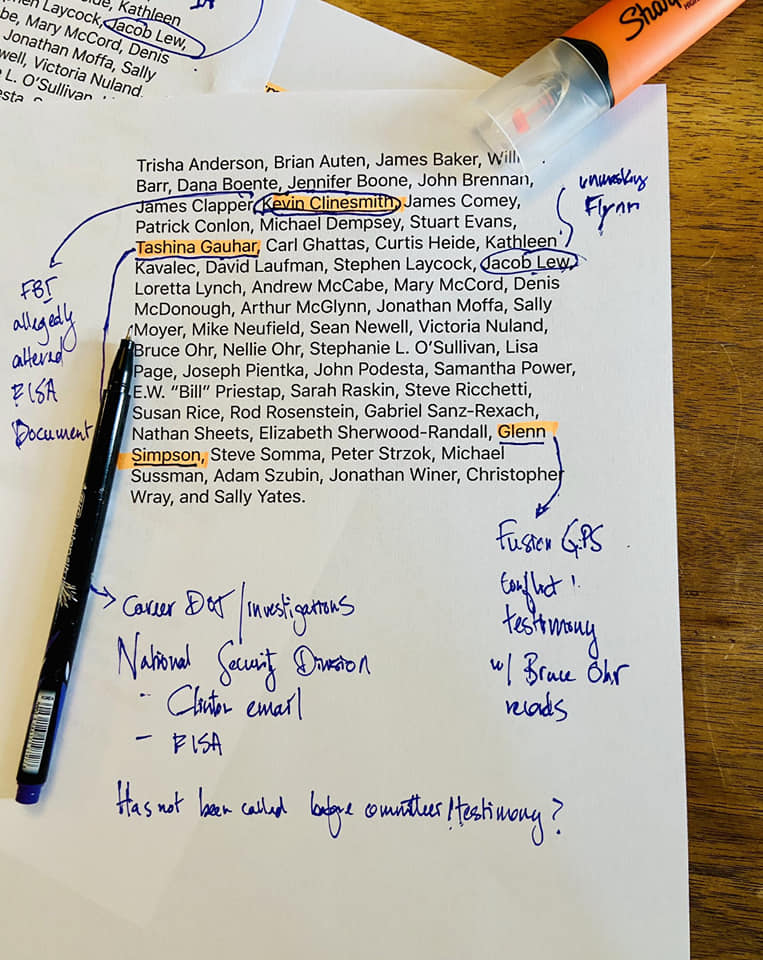 he, Kathleen
Laycock, Jacob Lew,
be, Mary McCord, Denis
Jonathan Moffa, Sally
well, Victoria Nuland,
L. O'Sullivan,
esta,
Sharp
Trisha Anderson, Brian Auten, James Baker, Willi
Barr, Dana Boente, Jennifer Boone, John Brennan,
James Clapper, Kevin Clinesmith, James Comey,
Patrick Conlon, Michael Dempsey, Stuart Evans,
Tashina Gauhar, Carl Ghattas, Curtis Heide, Kathleen
Kavalec, David Laufman, Stephen Laycock, Jacob Lew,
Loretta Lynch, Andrew McCabe, Mary McCord, Denis
McDonough, Arthur McGlynn, Jonathan Moffa, Sally
Moyer, Mike Neufield, Sean Newell, Victoria Nuland,
Bruce Ohr, Nellie Ohr, Stephanie L. O'Sullivan, Lisa
Page, Joseph Pientka, John Podesta, Samantha Power,
E.W. "Bill" Priestap, Sarah Raskin, Steve Ricchetti,
Susan Rice, Rod Rosenstein, Gabriel Sanz-Rexach,
Nathan Sheets, Elizabeth Sherwood-Randall, Glenn
Simpson, Steve Somma, Peter Strzok, Michael
Sussman, Adam Szubin, Jonathan Winer, Christopher
Wray, and Sally Yates.
unmasking
Flynn
FBI
allegedly
altered
FISA
Document
Fusion GPS
conflict
testimony
w/ Bruce Ohr
records
Career DOJ/investigations
National Security Division
- Clinton email
- FISA
Has not been called before committees/testimony?